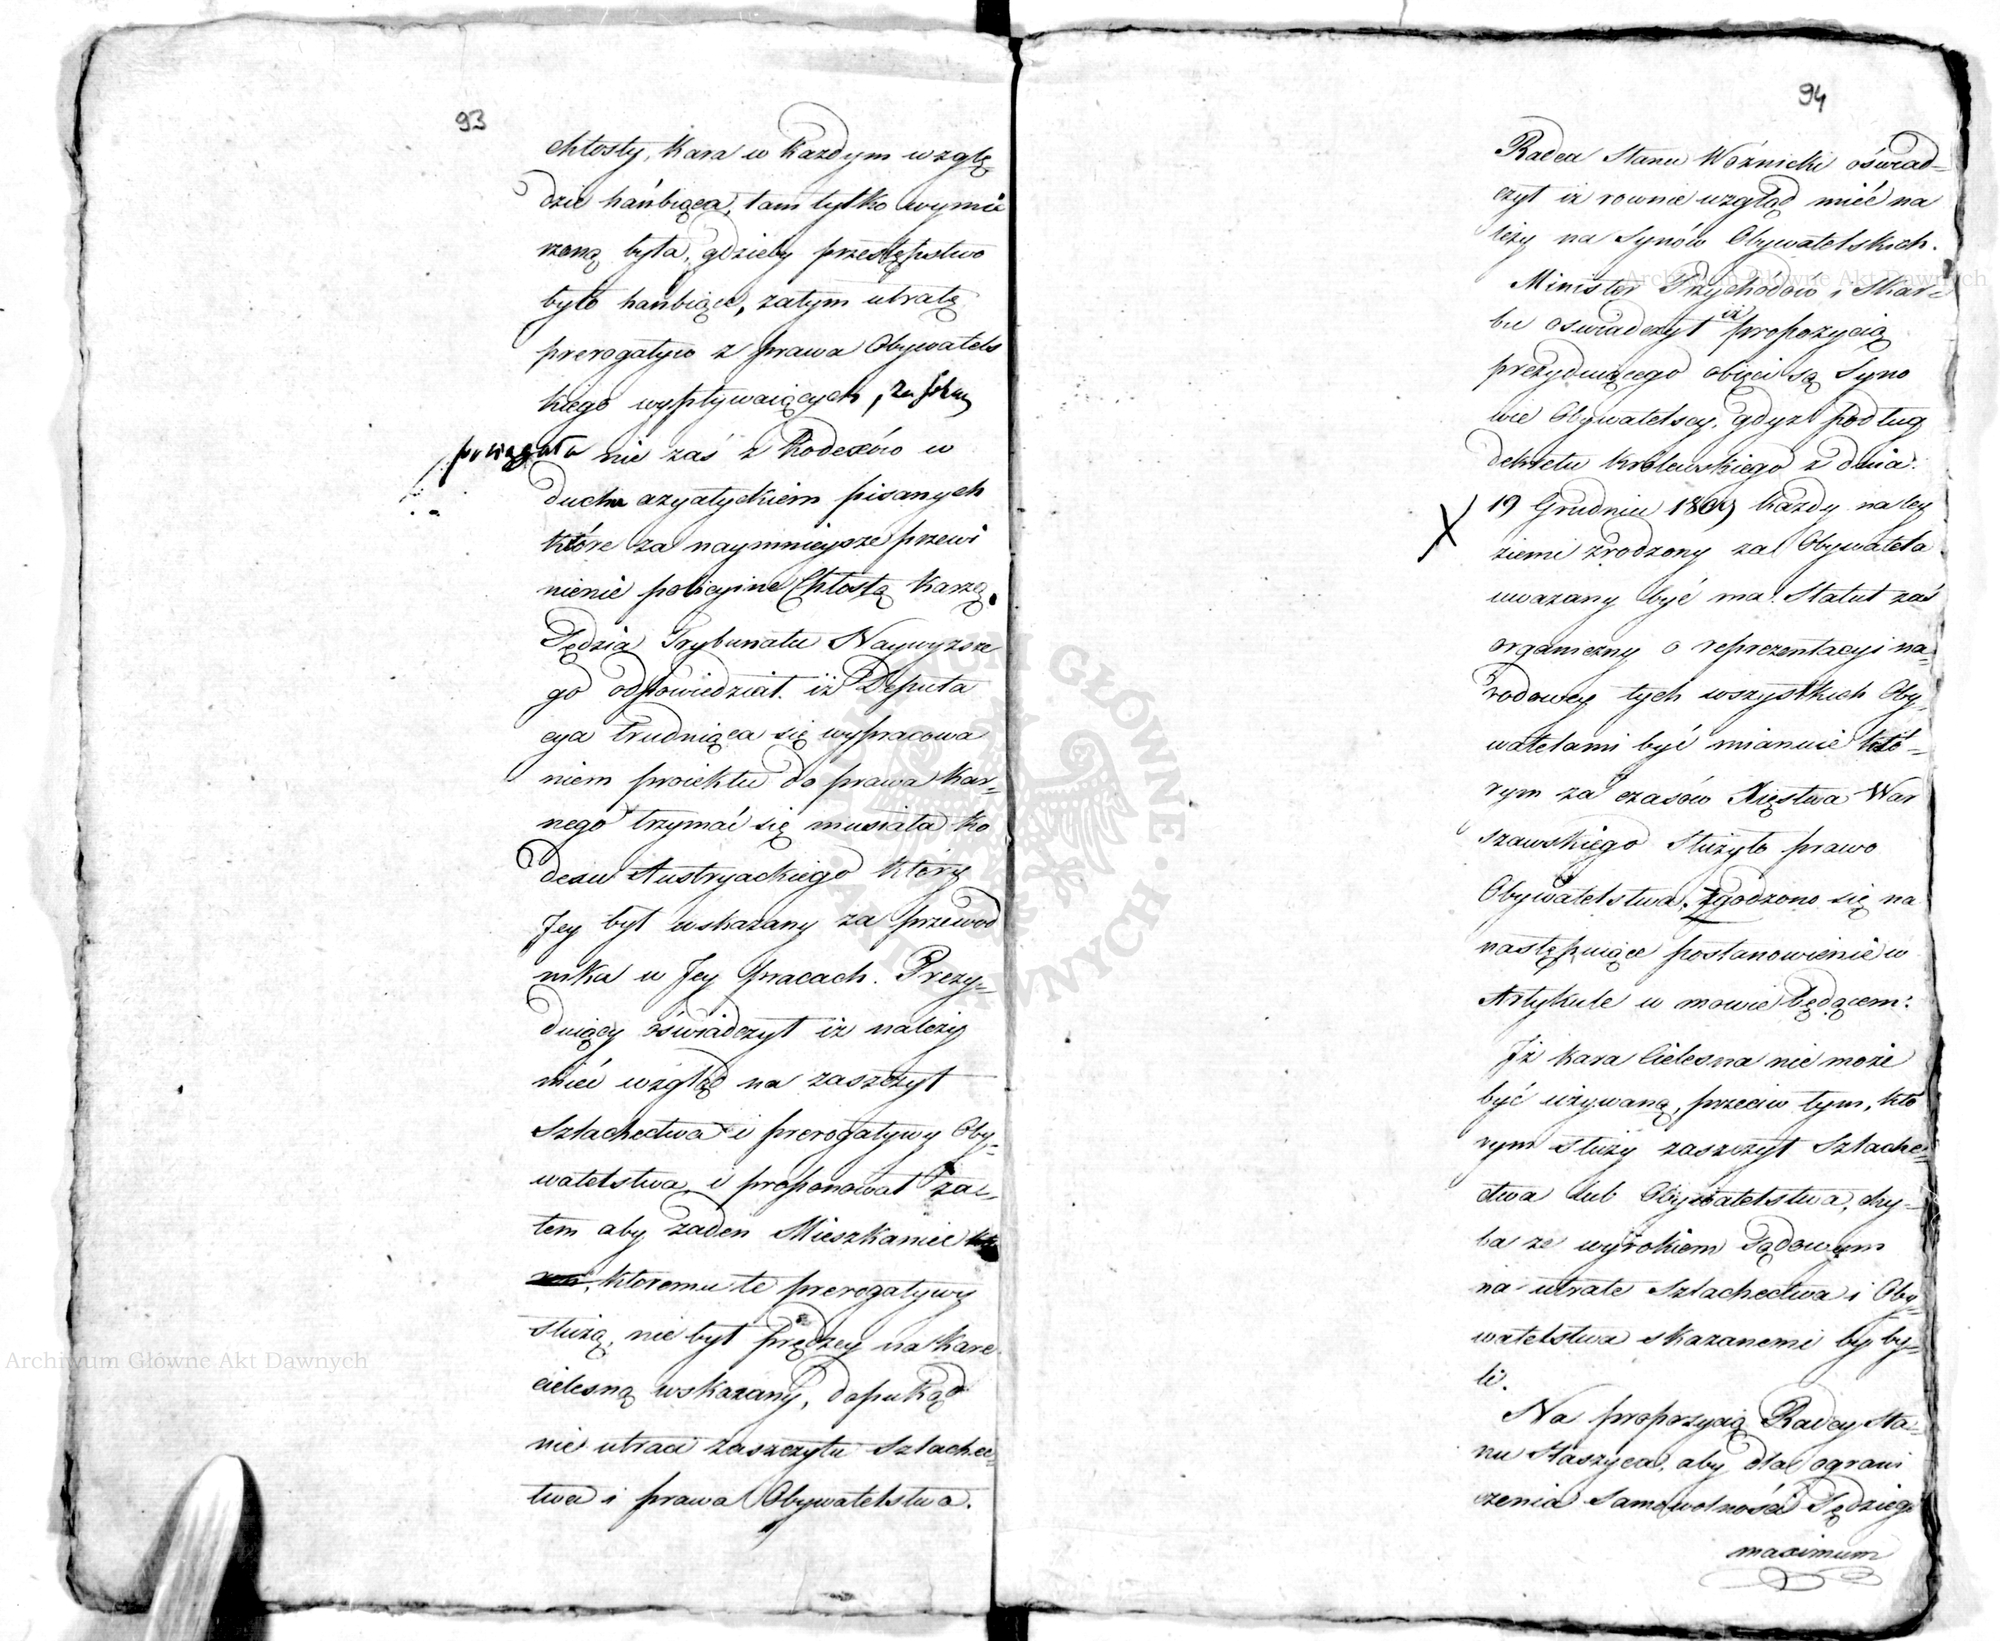 93
chłosty, kara w każdym wzglę
dzie hańbiąca, tam tylko wymie
rzoną była, gdzieby przestępstwo
było hańbiące, zatym utratę
prerogatyw z prawa Obywatels
kiego wypływaiących, za sobą
pociągało nie zaś z Kodexów w
duchu azyatyckiem pisanych
które za naymnieysze przewi
nienie policyine Chłostą karzą.
Sędzia Trybunału Naywyższe
go odpowiedział. iż Deputa
cya trudniąca się wypracowa
niem proiektu do prawa Kar-
nego trzymać się musiała ko
dexu Austryackiego który
Jey był wskazany za przewod
nika w Jey pracach. Prezy-
duiący oświadczył iż należy
mieć wzgląd na zaszczyt
Szlachectwa i prerogatywy Oby-
watelstwa, i proponował za-
tem aby żaden Mieszkaniec
któremu te prerogatywy
służą, nie był prędzey na karę
cielesną wskazany, dopukąd
nie utraci zaszczytu Szlachec-
twa i prawa Obywatelstwa.
94
Radca Stanu Woźnicki oświad-
czył iż rownie wzgląd mieć na
leży na Synów Obywatelskich.
Minister Przychodow i Skar-
bu oswiadczył iż propozycią
prezyduiącego obięci są Syno
wie Obywatelscy, gdyż podług
dekretu Krolewskiego z dnia
19 Grudnia 1807 każdy na tey
ziemi zrodzony za Obywatela
uważany być ma. Statut zaś
organiczny o reprezentacyi na-
rodowey tych wszystkich Oby-
watelami być mianuie któ-
rym za czasów Xięstwa War
szawskiego służyło prawo
Obywatelstwa, zgodzono się na
następuiące postanowienie w
Artykule w mowie będącem:
Iż kara Cielesna nie może
być używaną, przeciw tym, któ
rym służy zaszczyt Szlache-
ctwa lub Obywatelstwa, chy-
ba że wyrokiem Sądowym
na utrate Szlachectwa i Oby-
watelstwa skazanemi by by-
li.
Na propozycią Radcy Sta-
nu Staszyca, aby dla ograni
czenia Samowolności Sędziego
maximum
Archiwum Główne Akt Dawnych
Archiwum Główne Akt Dawnych